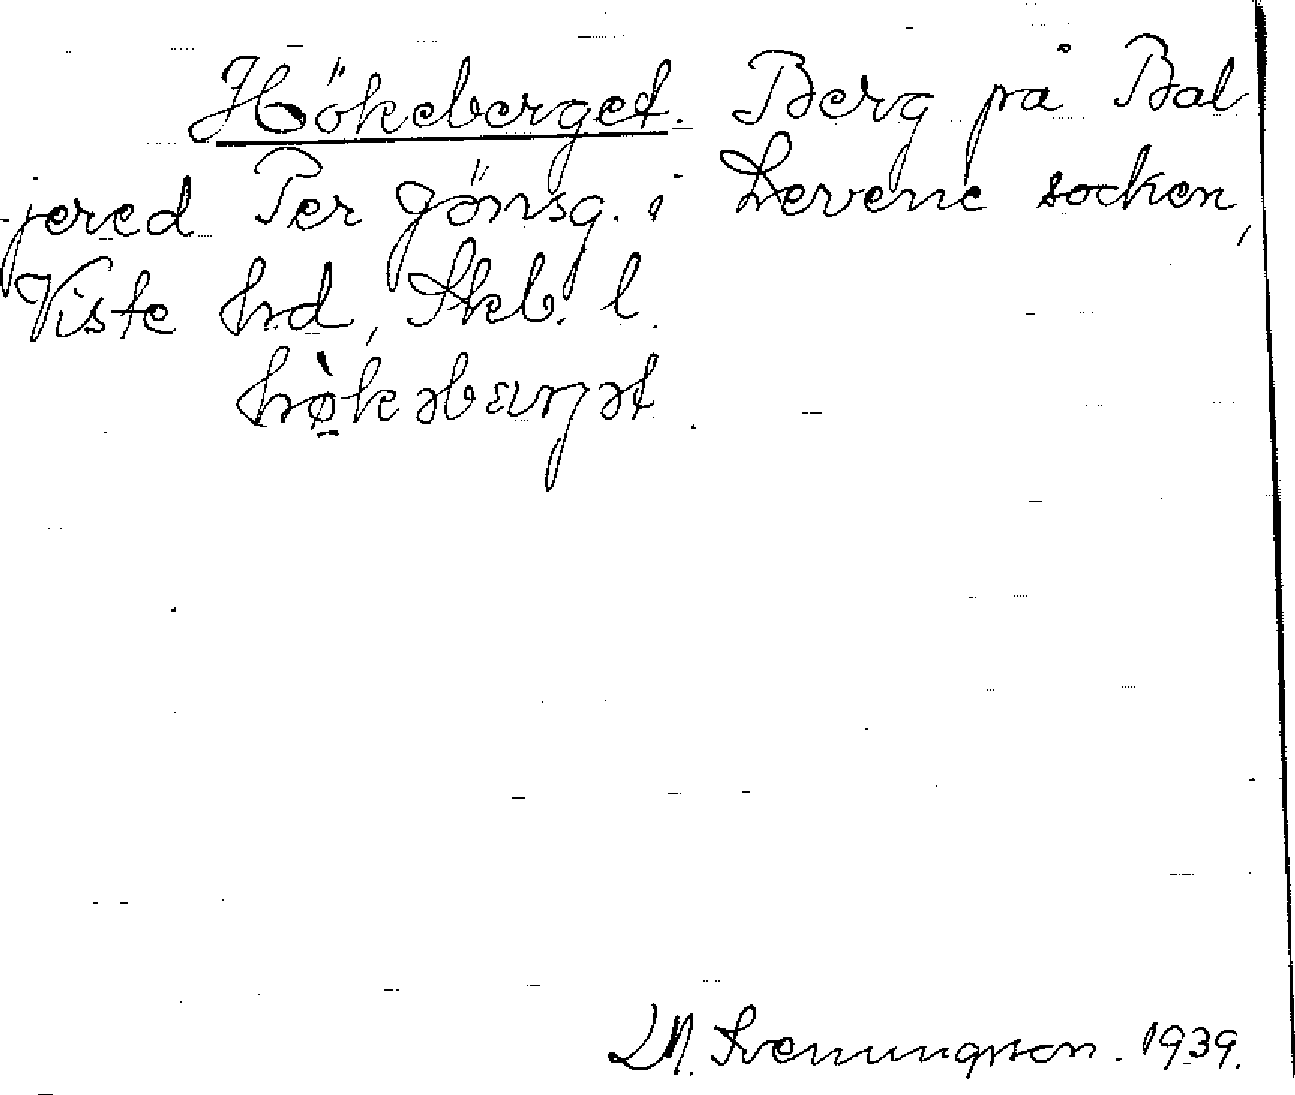 Hökeberget. Berg på Bal
jered Per Jönsg. i Levene socken,
Viste hrd, Skb. l.
hø̀kəbærjət.
Svenungsson. 1939.